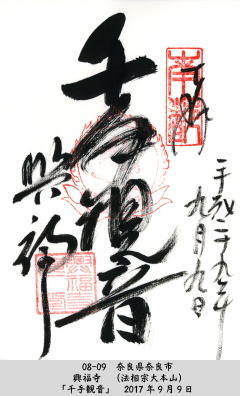 奉拝
平成二十九年
九月九日
千手観音
興福寺
08-09 奈良県奈良市
興福寺 (法相宗大本山)
「千手観音」 2017年9月9日